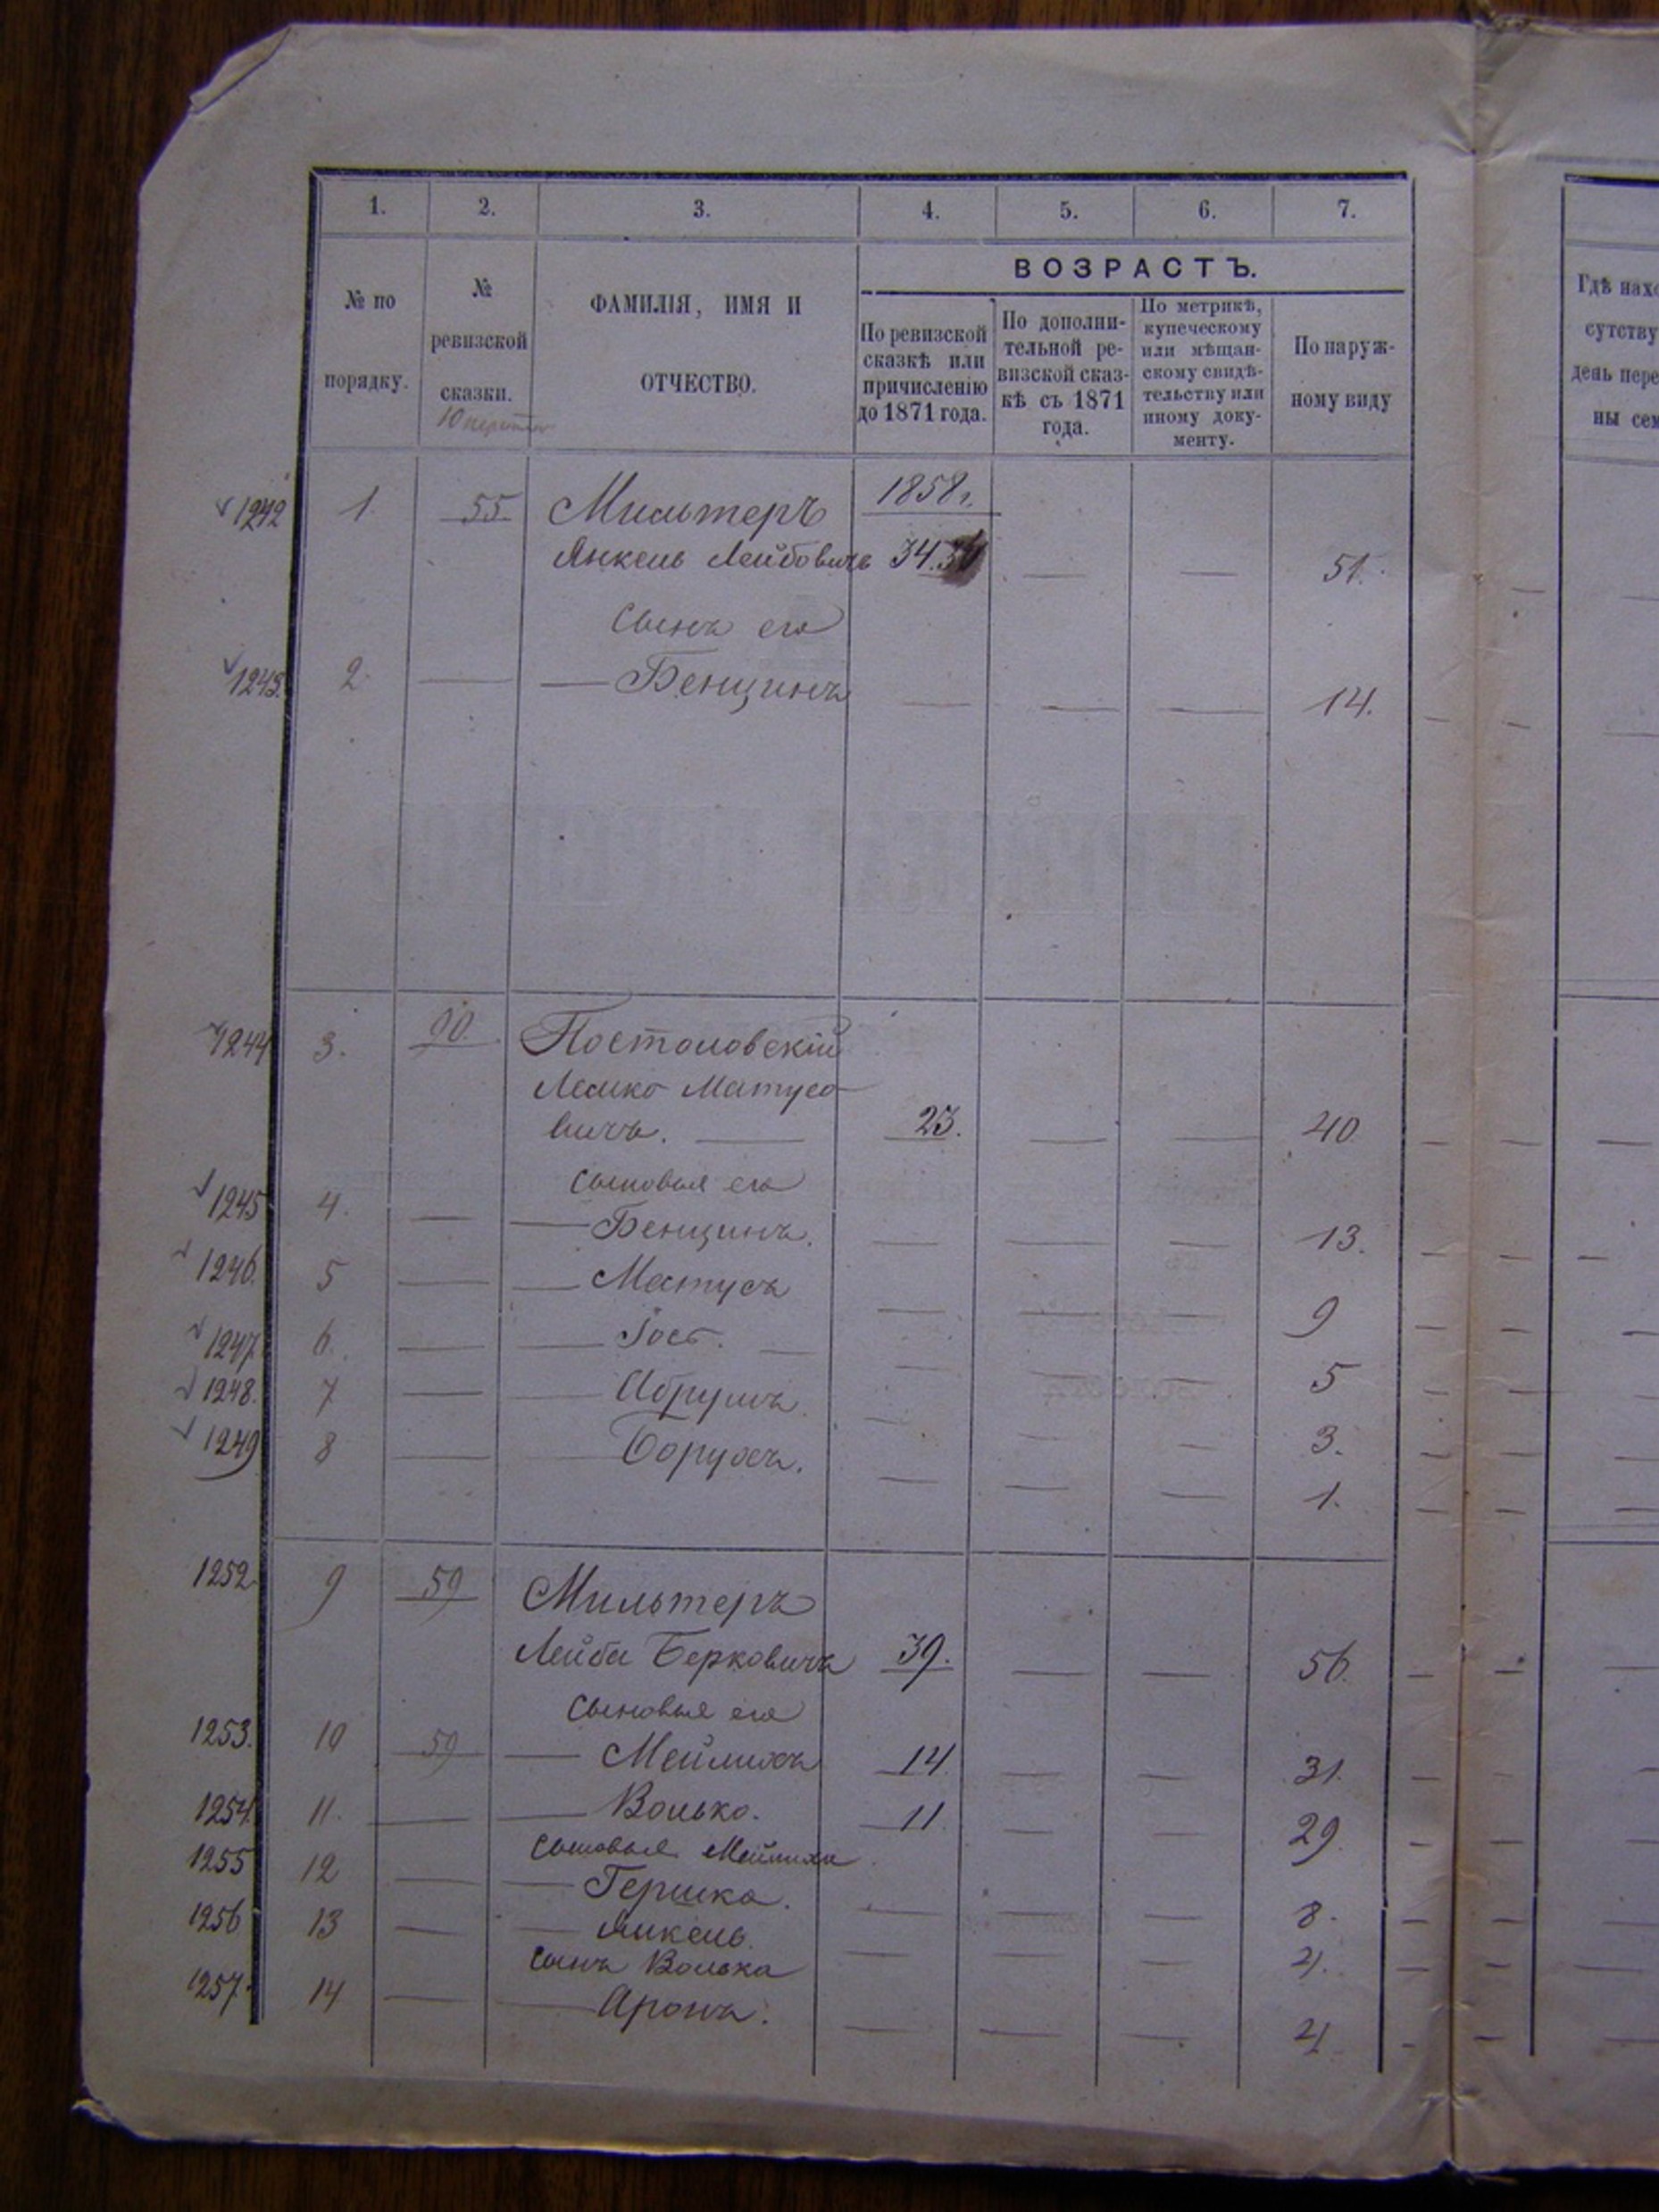 1. 2. 3. 4. 5. 6. 7.
ВОЗРАСТЪ.
№ по порядку.
№ ревизской сказки.
ФАМИЛІЯ, ИМЯ И ОТЧЕСТВО.
По ревизской сказкѣ или причисленію до 1871 года.
По дополни-тельной ре-визской сказ-кѣ съ 1871 года.
По метрикѣ, купеческому или мѣщан-скому свидѣ-тельству или иному доку-менту.
По наруж-ному виду
Гдѣ нахо
сутству
день пере
ны сем
10
1242 1. 55 Мильтеръ 1858 г.
Янкель Лейбовичъ 34. 34 — — 51.
Сынъ его
1243. 2. — — Бенціинъ — — — 14.
1244 3. 90. Постоловскій
Лейко Матусо
вичъ. — 23. — — 40
Сыновья его
1245 4. — — Бенціинъ. — — — 13.
1246. 5 — — Матусъ — — — 9
1247 6. — — Іосе. — — — — 5
1248. 7 — — Абрумъ — — — 3.
1249 8 — — Борухъ. — — — 1.
1252 9 59 Мильтеръ
Лейба Берковичъ 39. — — 56.
Сыновья его
1253. 10 59 — Мейлихъ 14. — — 31.
1254. 11. — — Волько. 11 — — 29.
Сыновья Мейлиха
1255 12 — — Гершко. — — — 8.
1256 13 — — Янкель. — — — 4.
Сынъ Волька
1257. 14 — — Аронъ. — — — 4